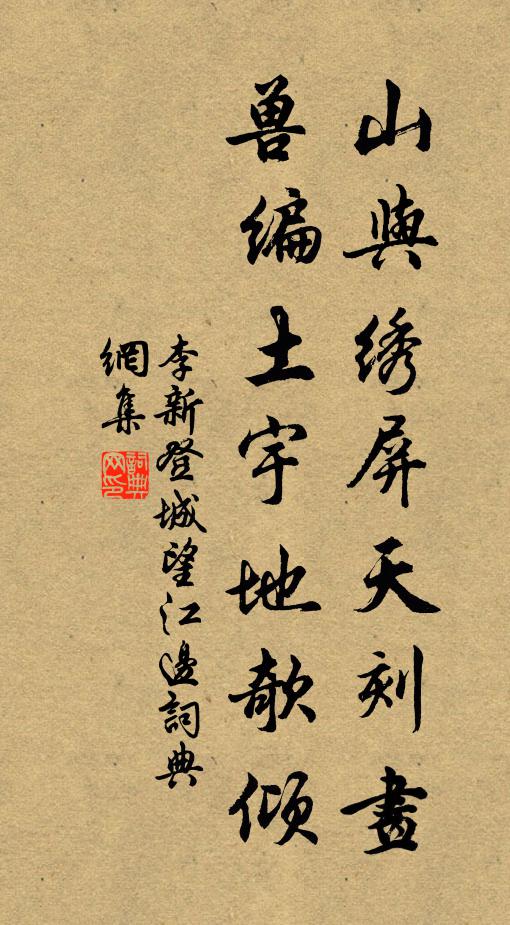 山與绣屏天刻畫
兽编土宇地欹倾
李新登城望江邊詞典
網集
詞典
网印